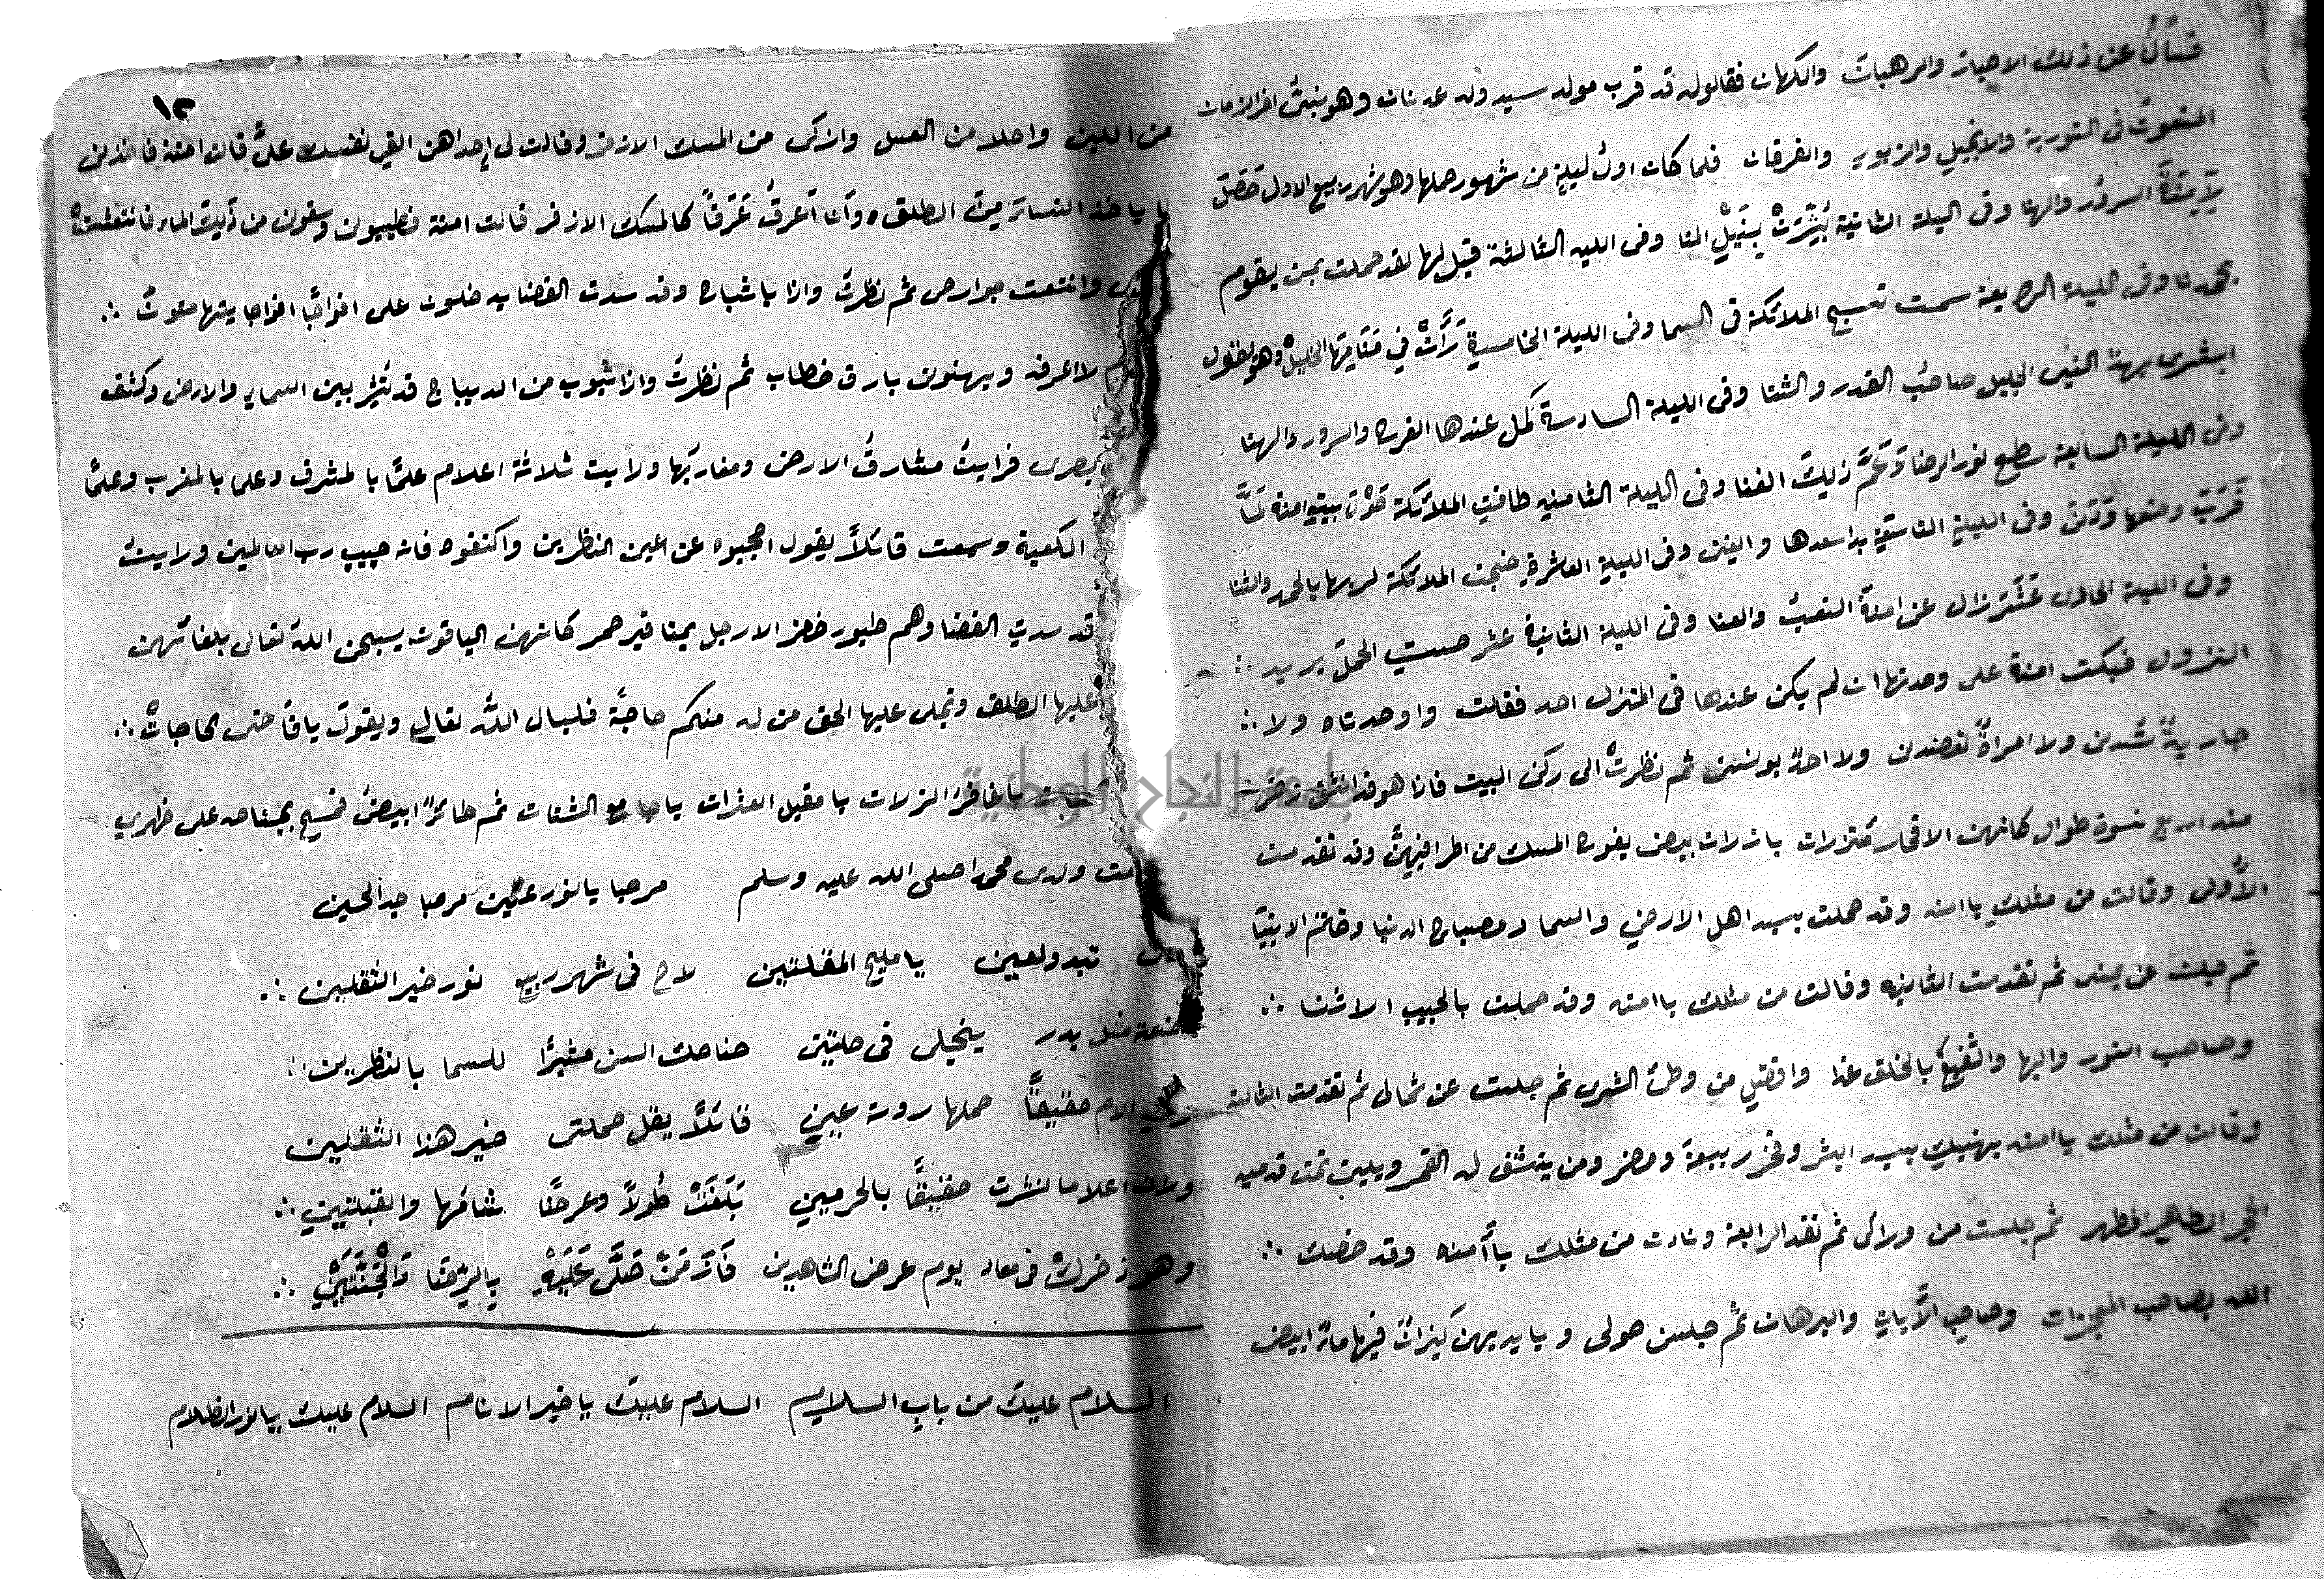 فسأل عن ذلك الاحبار والرهبان والكهان فقالوله قد قرب مولد سيد ولد عدنان وهو نبيُّ اخر الزمان
المنعوتُ في التورية والانجيل والزبور والفرقان فلما كان اول ليلةٍ من شهور حملها وهو شهر ربيع الاول حَصَلَ
لِآمِنَةَ السرورُ والهنا وفي اليلة الثانية بُشِّرَتْ بِنَيْلِ المنا وفي الليه الثالثة قيل لها لقد حملت بمن يقوم
بحمدنا وفي الليلة الرابعة سمعت تسبيح الملائكة في السما وفي الليلة الخامسة رَأَتْ في مَنَامِهَا الخليلْ وهو يقول
ابشري بهذا النبي الجليل صاحبُ القدر والثنا وفي الليلة السادسة كمل عندها الفرح والسرور والهنا
وفي الليلة السابعة سطع نور الرضا وَعَمَّ ذلِكَ الفنا وفي الليلة الثامنه طافت الملائكة حَوْل بيتِ امنة لَمَّا
قَرُبَ وضعها وَدَنَىَ وفي الليلةِ التاسعةِ بدا سعدها والغنى وفي الليلةِ العاشرةِ ضجت الملائكة لربها بالحمد والثنا
وفي الليلة الحادى عَشَرَ زال عن امنةَ التعبُ والعنا وفي الليلة الثانية عشر حست الحملَ يريد ∴
النزول فبكت امنة على وحدتها ان لم يكن عندها في المنزل احد فقالت واوحدتاه ولا ∴
جاريةٌ تشدن ولا امراةٌ تعضدن ولا احدٌ يونسن ثم نظرتْ الى ركن البيت فاذا هو قد انشق وخرج
منه اربع نسوة طوال كانهن الاقمار متزرات بازرات بيض يفوح المسك من اطرافِهِنَّ وقد تقدمت
الأولى وقالت من مثلك ياامنه وقد حملت بسيد اهل الارض والسما ومصباح الدنيا وخاتم الانبيَا
ثم جلست عن يمنى ثم تقدمت الثانيه وقالت من مثلك ياامنه وقد حملت بالحبيب الاشنا ∴
وصاحب النور والبها والشفيعُ بالخلق غدا وافضلِ من وطئ الثرى ثم جلست عن شمالى ثم تقدمت الثالثه
وقالت من مثلك ياامنه يهنيك بسيد البشر وفخر ربيعة ومضر ومن ينشق له القمر ويلين تحت قدميه
الحجر الطاهر المطهر ثم جلست من ورائى ثم تقد الرابعة ونادت من مثلك ياآمنه وقد خصك ∴
الله بصاحب المعجزات وصاحبِ الآياتِ والبرهان ثم جلسن حولى وبايديهن كيزان فيها ماءٌ ابيض
١٢
من اللبن واحلا من العسل وازكى من المسك الاذفر وقالت لى إحداهن القي نفسك علىَّ قالت امنة فاخذلن
ما ياخذ النساء من الطلق وأنا أعرقُ عَرَقاً كالمسك الاذفر قالت امنة فطيبون وسقون من ذلِكَ الماء فانتعشتْ
وانتعت جوارحى ثم نظرتُ واذا باشباح وقد سدت الفضا يدخلون على افواجًا افواجا يهنوننى ∴
لا اعرفه ويهنون بارق خطاب ثم نظرتُ واذا بثوب من الديباج قد نُشِرَ بين السماءِ والارض وكشف
بصرى فرايتُ مشارقُ الارض ومغاربَها ورايت ثلاثة اعلام علمًا بالمشرق وعلما بالمغرب وعلمًا
الكعبة وسمعت قائلاً يقول احجبوه عن اعين الناظرين واكتنفوه فانه حبيب رب العالمين ورايتُ
قد سدتِ الفضا وهم طيور خضر الارجل بمناقير حمر كانهن الياقوت يسبحن اللهَ تعالى بلغاتهن
عليها الطلق وتجلى عليها الحق من له منكم حاجَةً فليسال اللَّه تعالى ويقولَ ياقاضى الحاجاتْ ∴
ياغافرَ الزلات يا مقيل العثرات ياجامع الشتات ثم طائرًا ابيضُ فمسح بجناحه على ظهري
ولدى محمدا صلى الله عليه وسلم مرحبا يانور عينى مرحبا جد الحسين
تبدو لعين يامليح المقلتين لاح في شهر ربيع نور خير الثقلين ∴
مثل بدر ينجلى في حلتين ضاحك السن مشيرًا للسما بالنظرين ∴
الام حقيقاً حملها روت عينى قائلاً يقل حملتى خير هذا الثقلين
ورات اعلاما نشرت حقيقًا بالحرمين بَلَغَتْ طُولاً وعرضًا شامَها والقبلتين ∴
وهو ذخرك في معاد يوم عرض الشاهدين صَلَّى عَلَيهِ يالرِّضَا ∴
السلام عليك من بابِ السلام السلام عليك ياخير الانام السلام عليك يانور الظلام
جامعة النجاح الوطنية